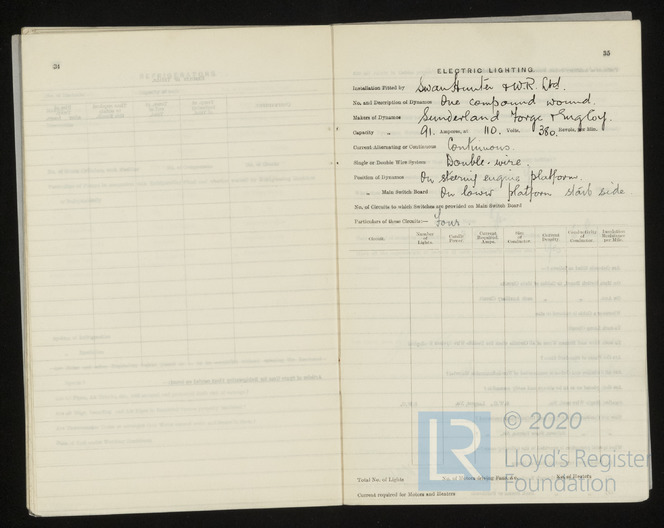 34
35
ELECTRIC LIGHTING.
Installation Fitted by Swan Hunter & W.R. Ltd.
No. and Description of Dynamos One compound wound.
Makers of Dynamos Sunderland Forge & Eng Coy.
Capacity „ 91. Amperes, at 110. Volts, 380. Revols. per Min.
Current Alternating or Continuous Continuous.
Single or Double Wire System Double-wire.
Position of Dynamos On steering engine platform.
„ Main Switch Board On lower platform starb side.
No. of Circuits to which Switches are provided on Main Switch Board
Particulars of these Circuits:— Four
Circuit. Number of Lights. Candle Power. Current Required. Amps. Size of Conductor. Current Density. Conductivity of Conductor. Insulation Resistance per Mile.
Total No. of Lights No. of Motors driving Fans, &c. No. of Heaters
Current required for Motors and Heaters
LR
© 2020
Lloyd's Register
Foundation